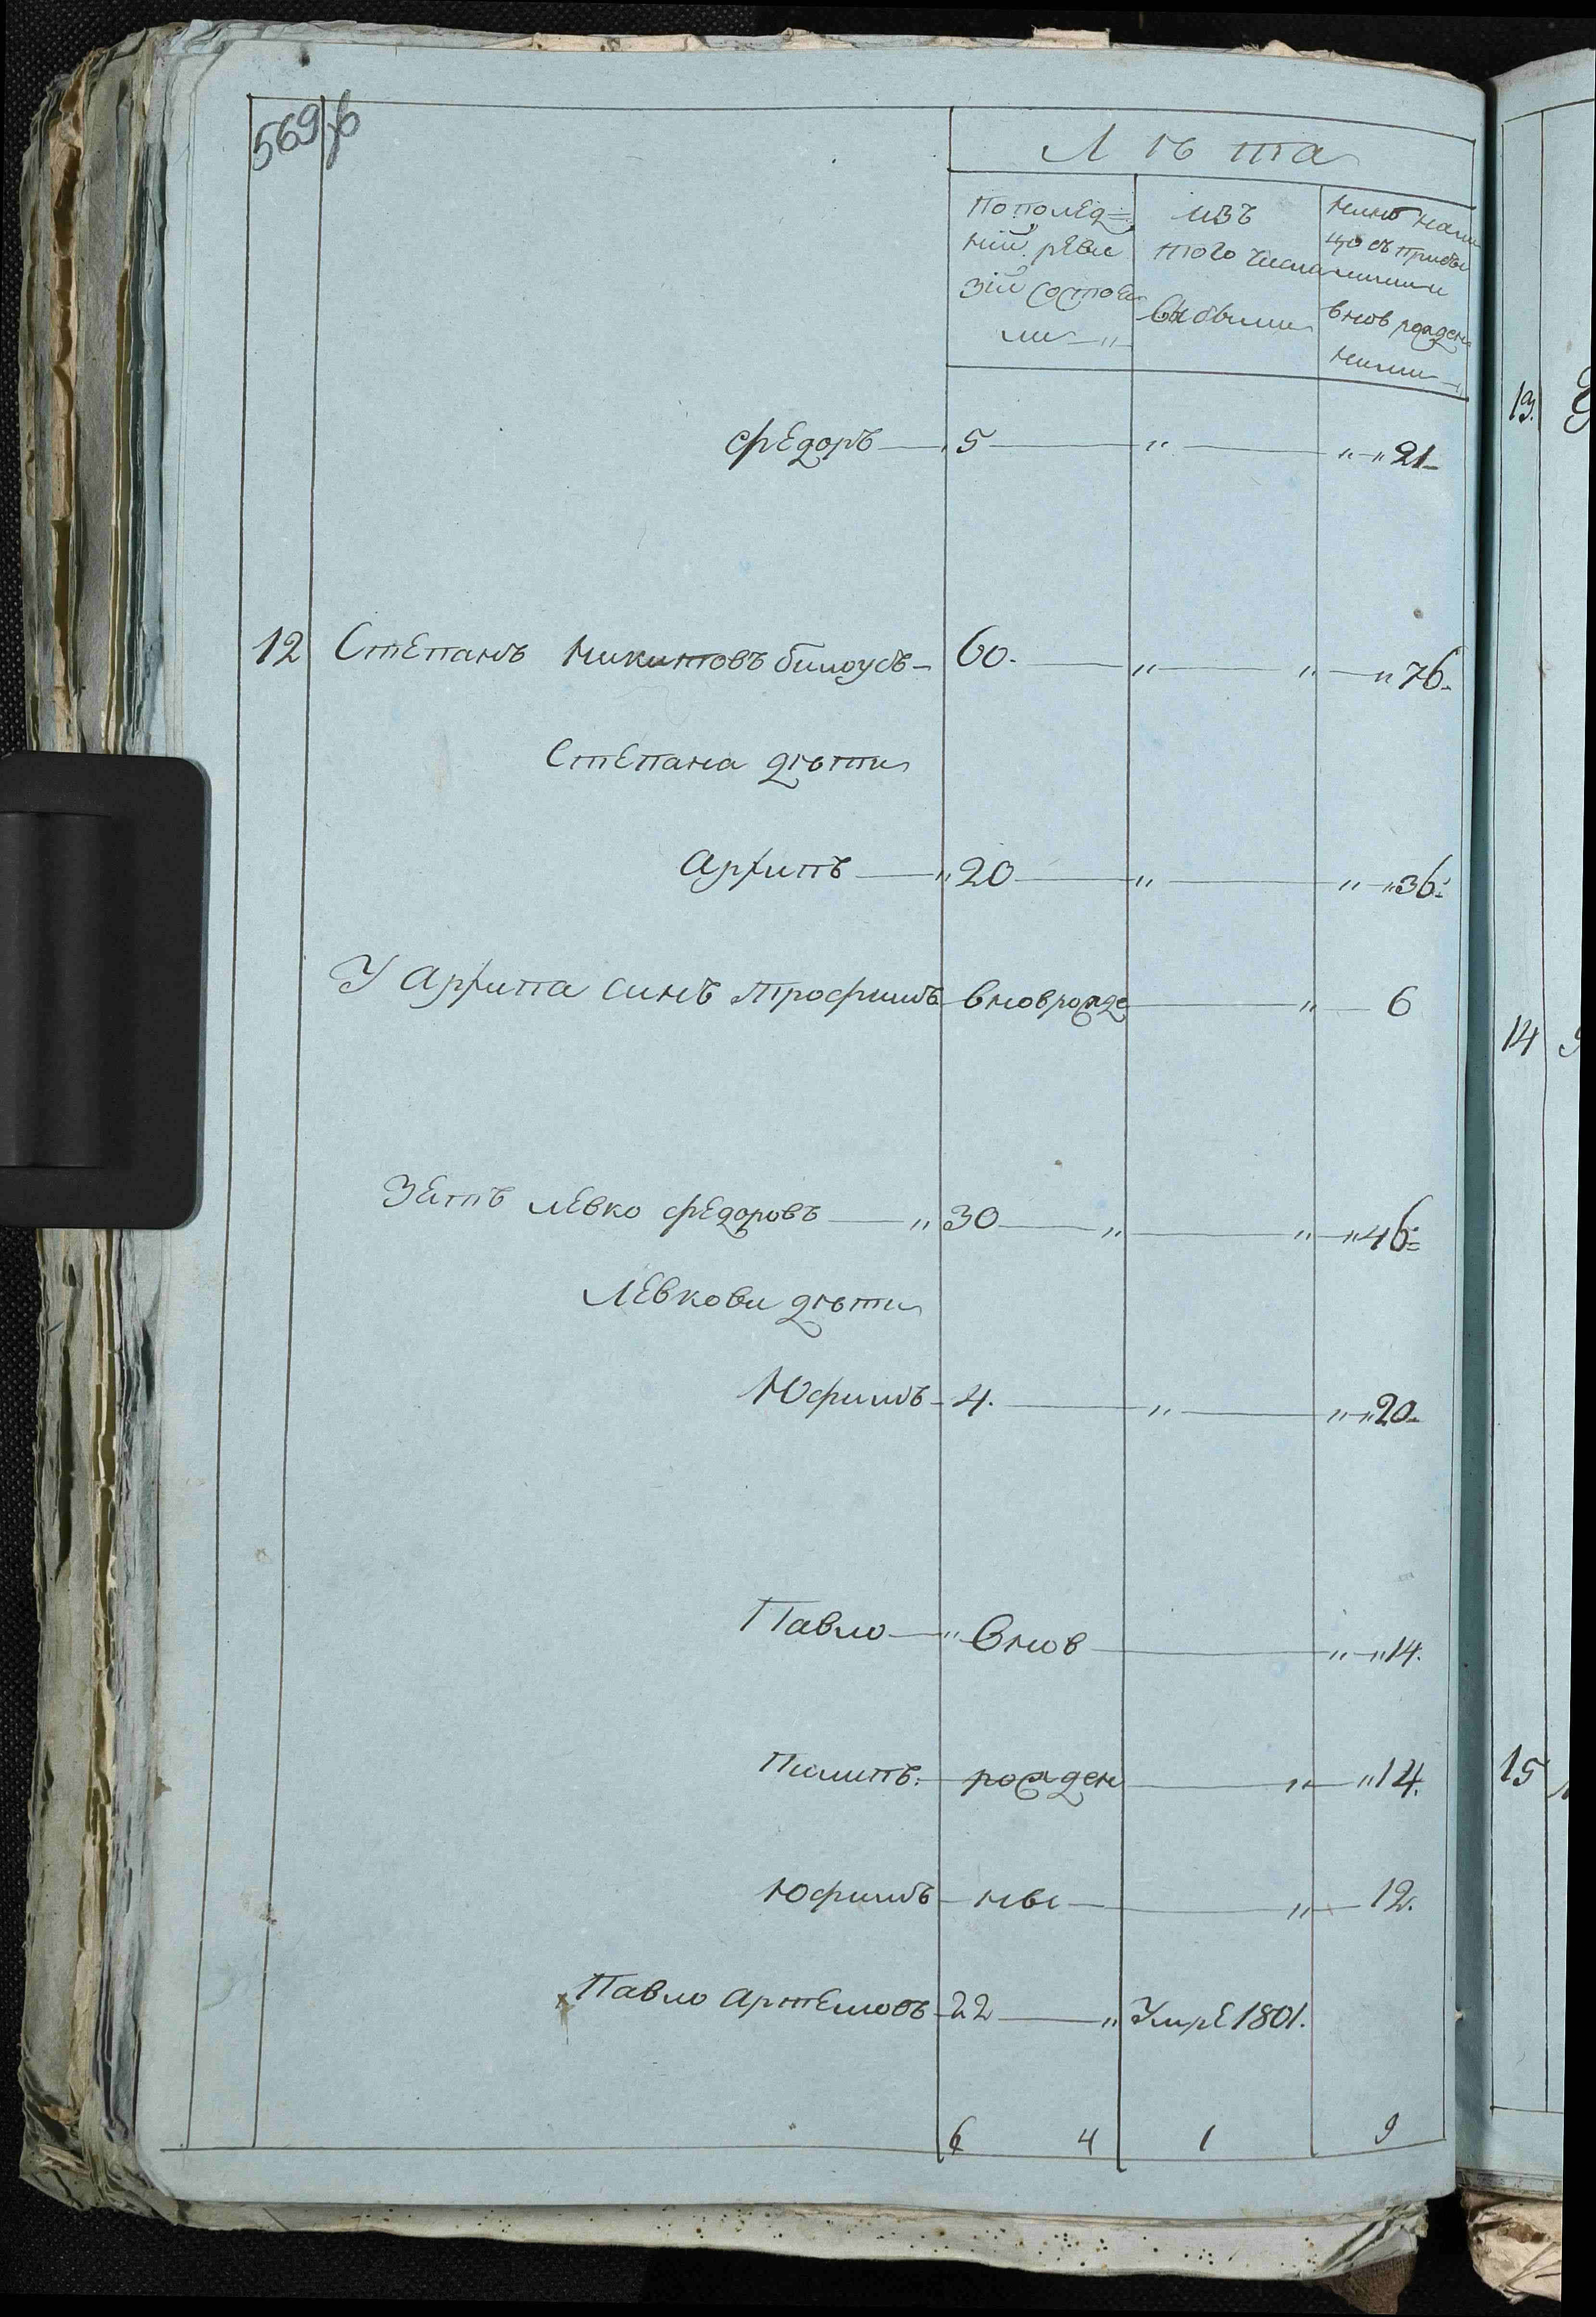 569 об
Лѣта
по послед=
ній реви
зіи состоя
ли
изъ
того числа
выбыли
ныне нали
цо съ прибы
лими и
внов рожден
ними
Федоръ 5 " " 21
12 Степанъ Никитовъ Билоусъ 60. " " 76.
Степана дѣти
Архипъ 20 " " 36
У Архипа синъ Трофимъ вноврожде " 6
Зеть Левко Федоровъ 30 " " 46
Левкови дѣти
Юфимъ 4. " " 20
Павло внов " 14.
Пилипъ рожден " 14.
Юфимъ ные " 12.
Павло Артемовъ 22 " Умре 1801.
6 4 1 9
13.
14
15